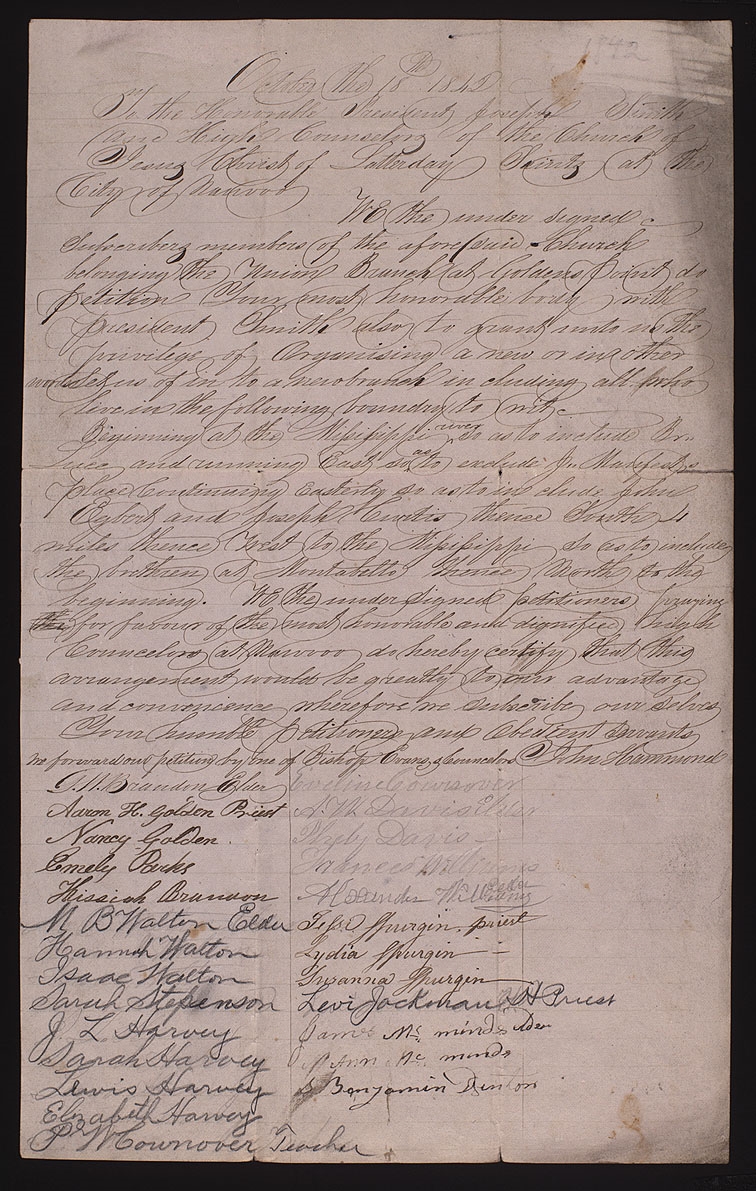 1842
October the 18th 1842
To the Honorable President Joseph Smith
and High Counselors of the Church of
Jesus Christ of Latterday Saints at the
City of Nauvoo
WE the under signed
Subscribers members of the afore said Church
belonging the Union Branch at Goldens Point do
petition Your most honorable body with
president Smith also to grant unto us the
privilege of Organising a new or in other
words set us of in to a new branch in cluding all who
live in the following boundry to wit
Beginning at the Missisippi river so as to include Br.
Luce and running East so as to exclude Jn. Maxfeild,s
place Continuing Easterly so as to in clude John
Egbert and Joseph Curtis thence South 4
miles thence West to the Missisippi so as to include
the brethren at Montabello thence North to the
beginning. WE the under signed petitioners praying
for favour of the most honorable and dignified high
Councelors at Nauvoo do hereby certify that this
arrangement would be greatly to our advantage
and convenience wherefore we subscribe our selves
Your humble petitioners and Obedient Servants
we forward our petition by one of Bishop Evans, s Councelors John Hammond
Brandon Elder
Aaron H. Golden Priest
Nancy Golden
Emely Parks
Kissiah Brandon
M B Walton Elder
Hannah Walton
Isaac Walton
Sarah Stepenson
J. L Harvey
Sarah Harvey
Lewis Harvey
Elizabeth Harvey
P. W Cownover Teacher
Eveline Cownover
A N Davis Elder
Pheby Davis
Frances Williams
Alexander Williams Elder
Jesse Spurgin. priest
Lydia Spurgin
Susanna Spurgin
Levi Jackman H Priest
James Mc minds Elder
Ann Mc minds
Benjamin Denton